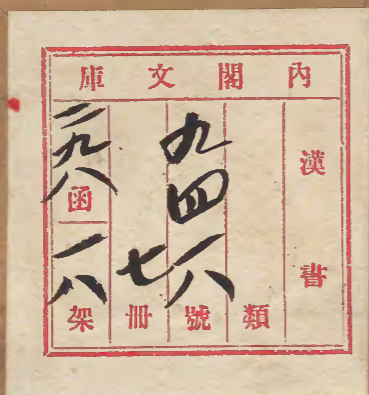 內閣文庫
漢書
類
九四一八號
七冊
二九八函
一八架